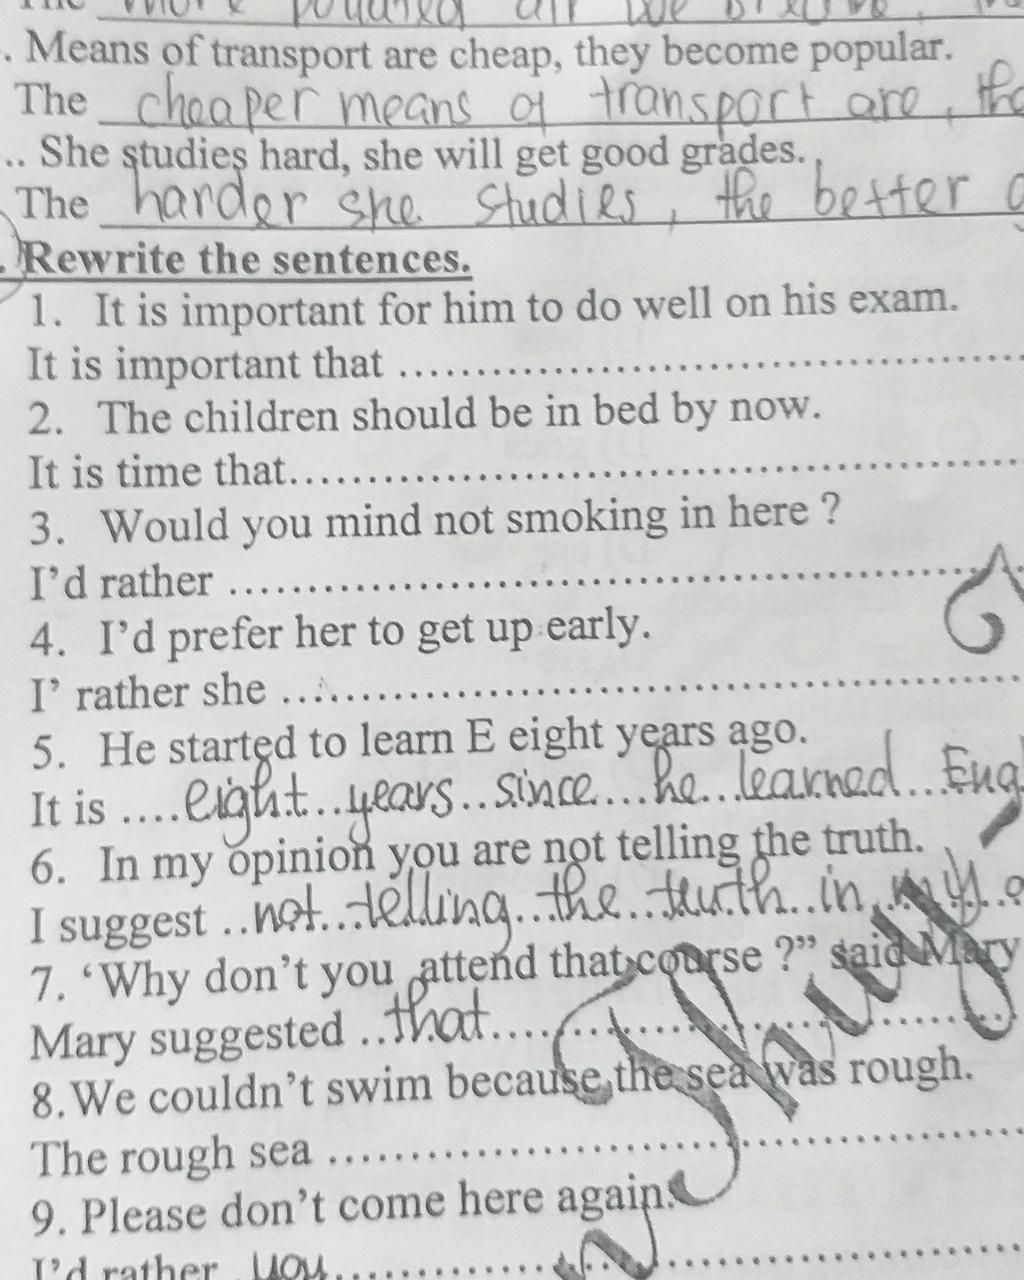 The more polluted air we
. Means of transport are cheap, they become popular.
The cheaper means of transport are, the
.. She studies hard, she will get good grades.
The harder she studies, the better g
. Rewrite the sentences.
1. It is important for him to do well on his exam.
It is important that ..............................
2. The children should be in bed by now.
It is time that..............................
3. Would you mind not smoking in here ?
I'd rather ..............................
4. I'd prefer her to get up early.
I' rather she ..............................
5. He started to learn E eight years ago.
It is ....eight..years..since...he..learned...Eng
6. In my opinion you are not telling the truth.
I suggest ..not...telling...the...truth..in..my..o
7. ‘Why don't you attend that course ?” said Mary
Mary suggested ..that..............................
8.We couldn't swim because the sea was rough.
The rough sea ..............................
9. Please don't come here again.
I'd rather you..............................